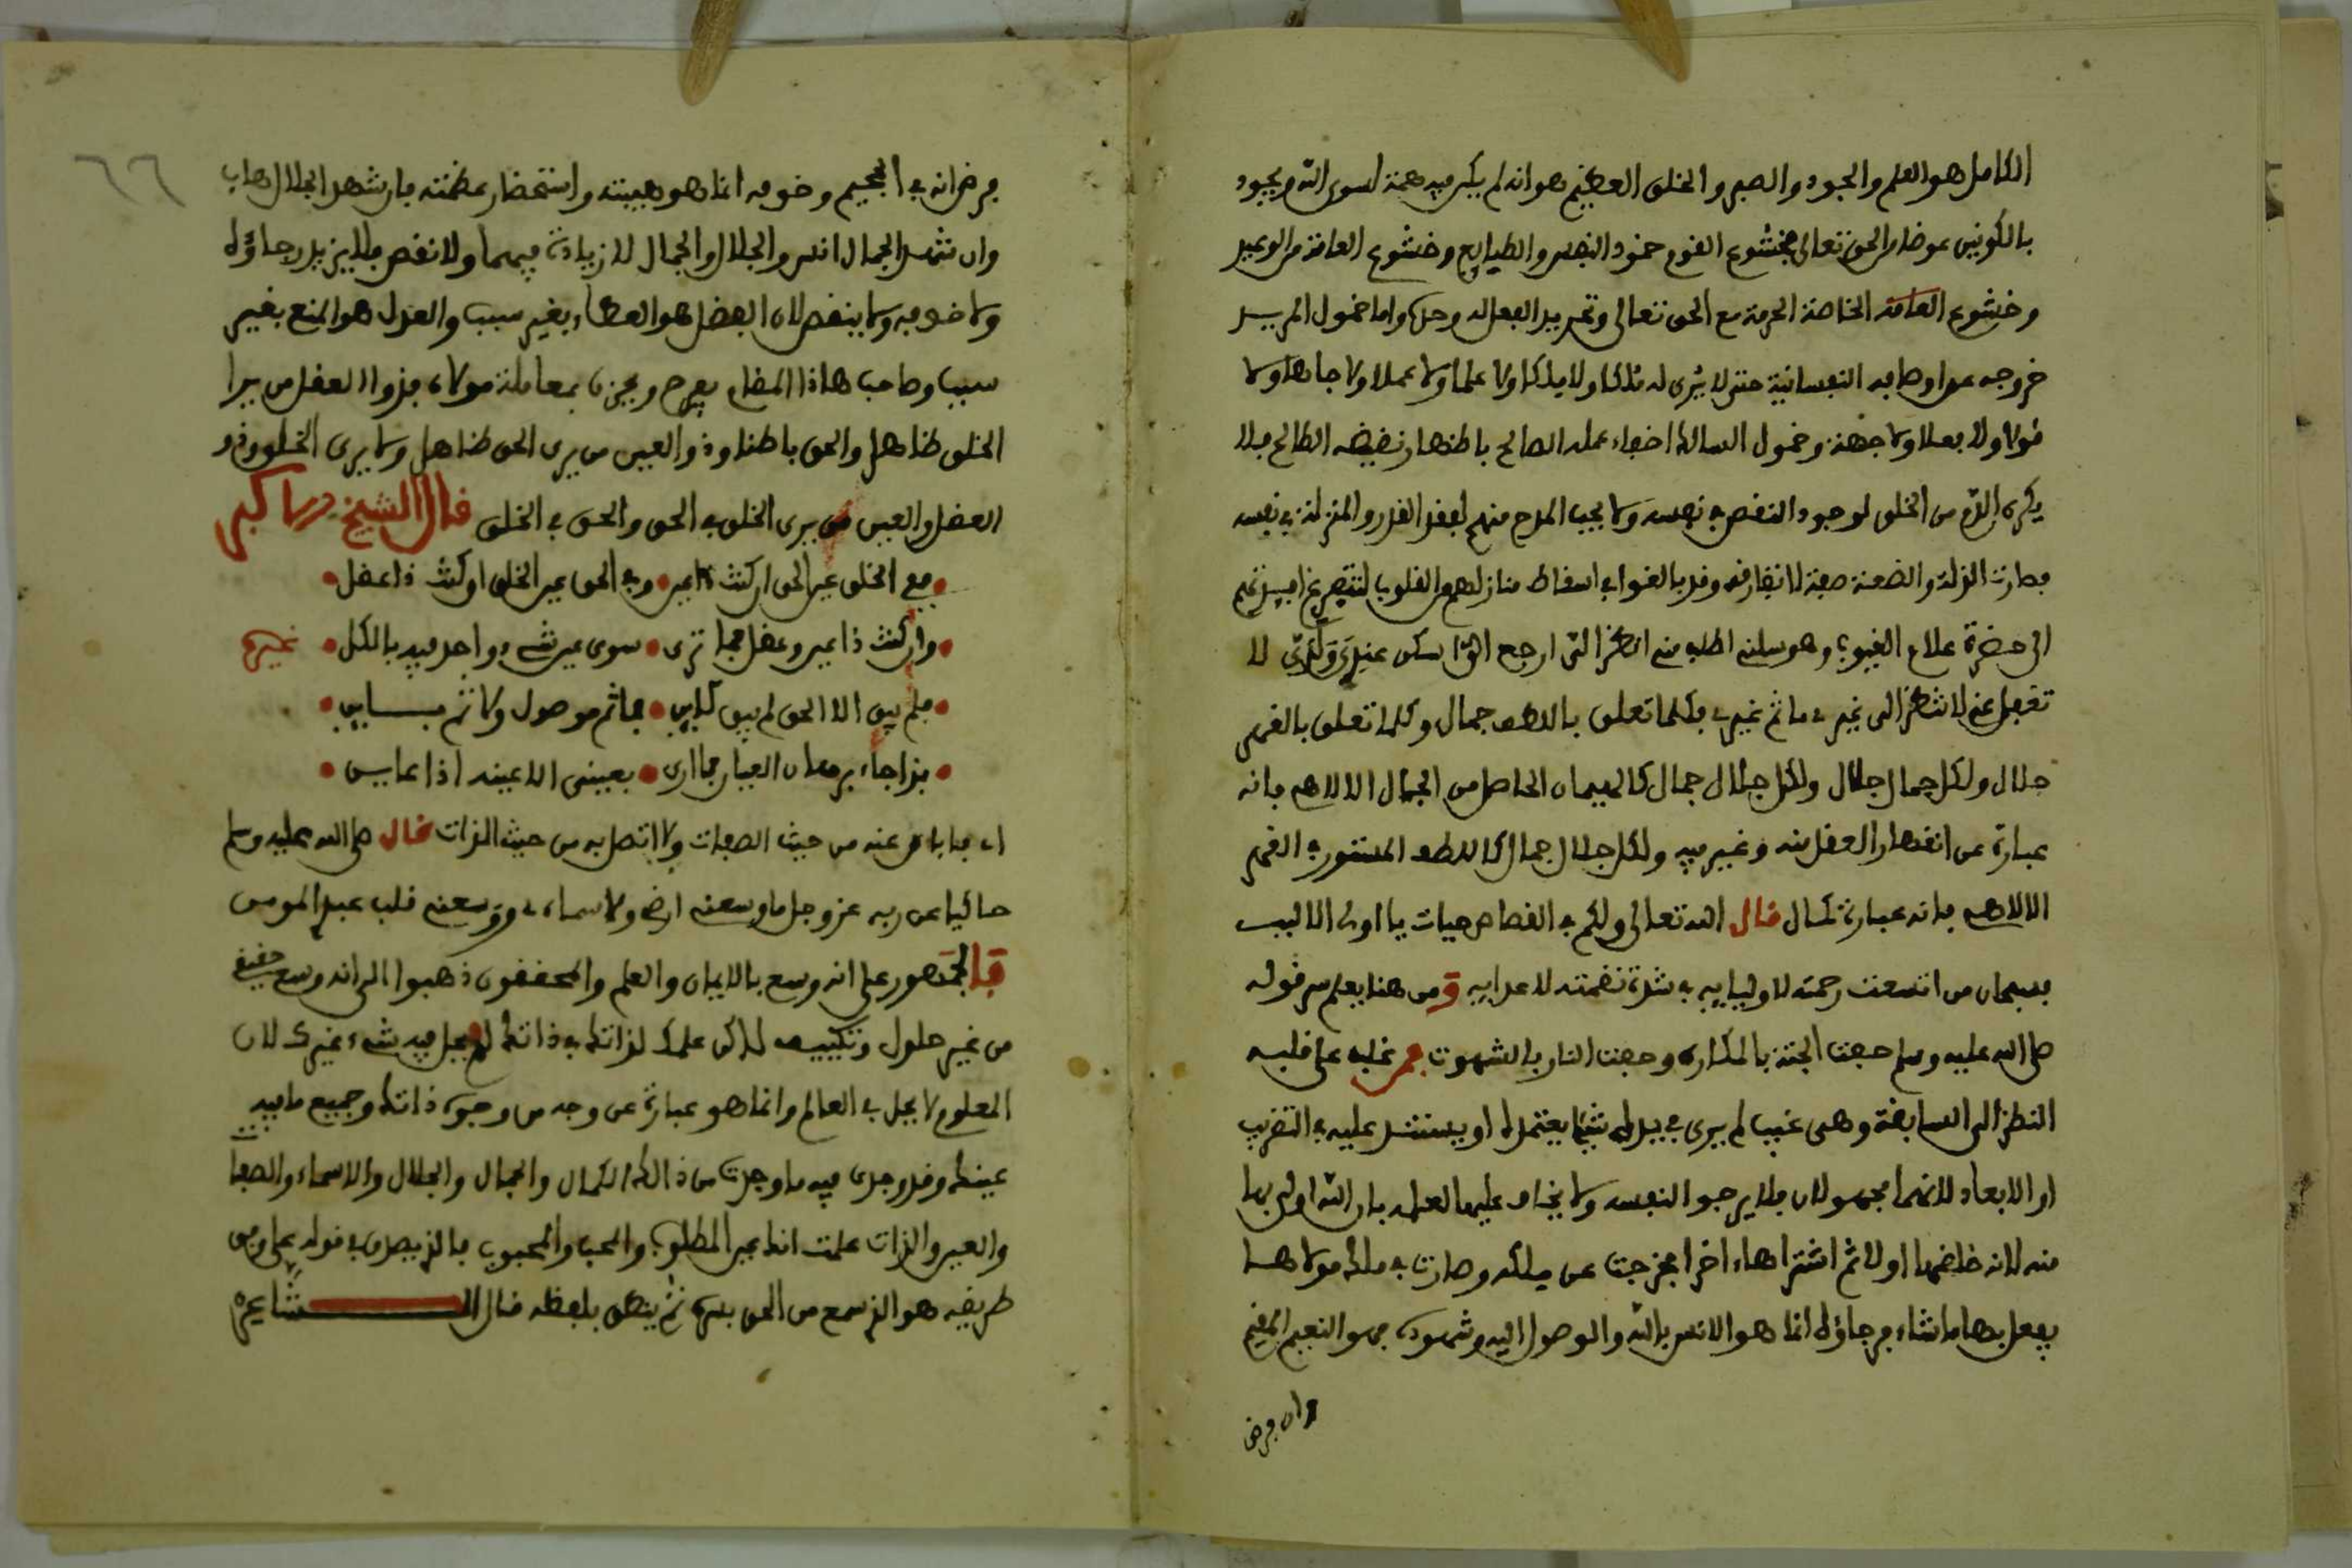 الكامل هو العلم والجود والصبر والخلق العظيم هو انه لم يكن فيه همة لسوى الله ويجود
بالكونين عوضا من الحق تعالى فخشوع القوم خمود النفس والطبايع وخشوع العامة من الوعيد
وخشوع العامة الخاصة الحرمة مع الحق تعالى وتجريد الفعل له وحده واما خمول المريد
خروجه عن اوصافه النفسانية حتى لا يرى له ملكا ولا علما ولا عملا ولا جاها ولا
قولا ولا فعلا ولا جهة وخمول السالك اخفاء عمله الصالح باطنها ونقيضه الطالح فلا
يكره الذم من الخلق لوجود النقص في نفسه ولا يحب المدح منهم لفقد القدر والمنزلة في نفسه
فصارت الذلة والضعة صفة لا تفارقه وقد بالغوا في اسقاط منازلهم من القلوب
الى حضرة علام الغيوب وهو
تغفل عني لا تنظر الى غيري ما ثم غيري فكلما تعلق باللطف جمال وكلما تعلق بالقهر
جلال ولكل جمال جلال ولكل جلال جمال كالهيمان الحاصل من الجمال الالاهي فانه
عبارة عن انقهار العقل منه وتحير فيه ولكل جلال جمال كاللطف المستور في القهر
الالاهي فانه عبارة كما قال قال الله تعالى ولكم في القصاص حيات يا اولى الالباب
فسبحان من اتسعت رحمته لاوليايه في شدة نقمته لاعدايه ومن هنا يعلم سر قوله
صلى الله عليه وسلم حفت الجنة بالمكاره وحفت النار بالشهوت فمن غلب على قلبه
النظر الى السابقة وهى غيب لم يرى في يده شيئا يعتمده او يستند عليه في التقريب
او الابعاد لانهما مجهولان فلا يرجو النفسه ولا يخاف عليها لعلمه بان الله اولى بها
منه لانه خلقها اولا ثم اشتراها اخرا فخرجت عن ملكه وصارت في ملك مولاها
يفعل بها ما شاء فرجاؤه انما هو الانس بالله والوصول اليه وشهوده فهو النعيم المقيم
وان فرض
٦٦
فرض انه في الجحيم وخوفه انما هو هيبته واستحضار عظمته فان شهد الجلال هاب
وان شهد الجمال انس والجلال والجمال لا زيادة فيهما ولا نقص فلا يزيد رجاؤه
ولا خوفه ولا ينقص لان الفضل هو العطاء بغير سبب والعدل هو المنع بغير
سبب وصاحب هاذا المقام يفرح ويحزن بمعاملة مولاه فذوا العقل من يرا
الخلق ظاهرا والحق باطنا وذو العين من يرى الحق ظاهرا ولا يرى الخلق وذو
العقل والعين من يرى الخلق في الحق والحق في الخلق قال الشيخ الاكبر
• ففي الخلق عين الحق ان كنت ذا عين • وفي الحق عين الخلق ان كنت ذا عقل •
• وان كنت ذا عين وعقل فما ترى • سوى عين شيء واحد فيه بالكل • غيره
• فلم يبق الا الحق لم يبق كاين • فما ثم موصول ولا ثم بساين •
• بذا جاء برهان العيان فما ارى • بعيني الا عينه اذا عاين •
اى فما باين عنه من حيث الصفات ولا اتصل به من حيث الذات قال صلى الله عليه وسلم
حاكيا عن ربه عز وجل ما وسعني ارضي ولا سماءي ووسعني قلب عبدي المومن
فالجمهور على انه وسع بالايمان والعلم والمحققون ذهبوا الى انه وسع حقيقي
من غير حلول وتكييف لاكن علمك لذاتك في ذاتك لم يحل فيه شيء غيرك لان
المعلوم لا يحل في العالم وانما هو عبارة عن وجه من وجوه ذاتك وجميع ما فيه
عينك وقد وجدت فيه ما وجدت من ذالك الكمال والجمال والجلال والاسماء والصفات
والعين والذات علمت انك عين المطلوب والمحب والمحبوب فالذي صدق في قوله على
طريقه هو الذي سمع من الحق بسره ثم ينطق بلفظه قال الشاعر